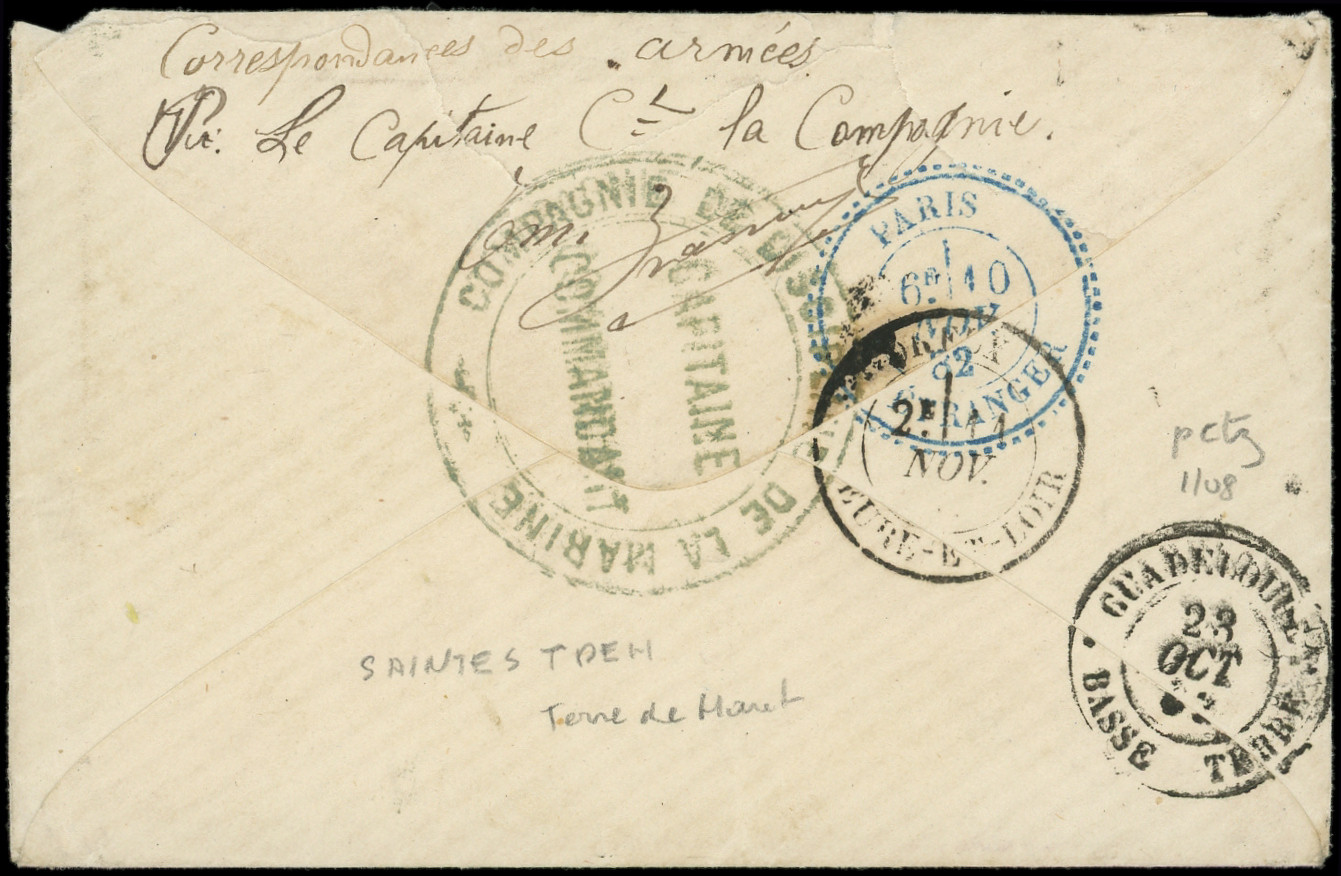 Correspondances des armées
Vu: Le Capitaine Ct la Compagnie.
COMPAGNIE DE DISCIPLINE DE LA MARINE
CAPITAINE
COMMANDANT
PARIS
6E 10
NOV
82
ETRANGER
2E 11
NOV.
EURE-ET-LOIR
1108
GUADELOUPE
23
OCT
BASSE TERRE
SAINTES TDEH
Terre de Haut